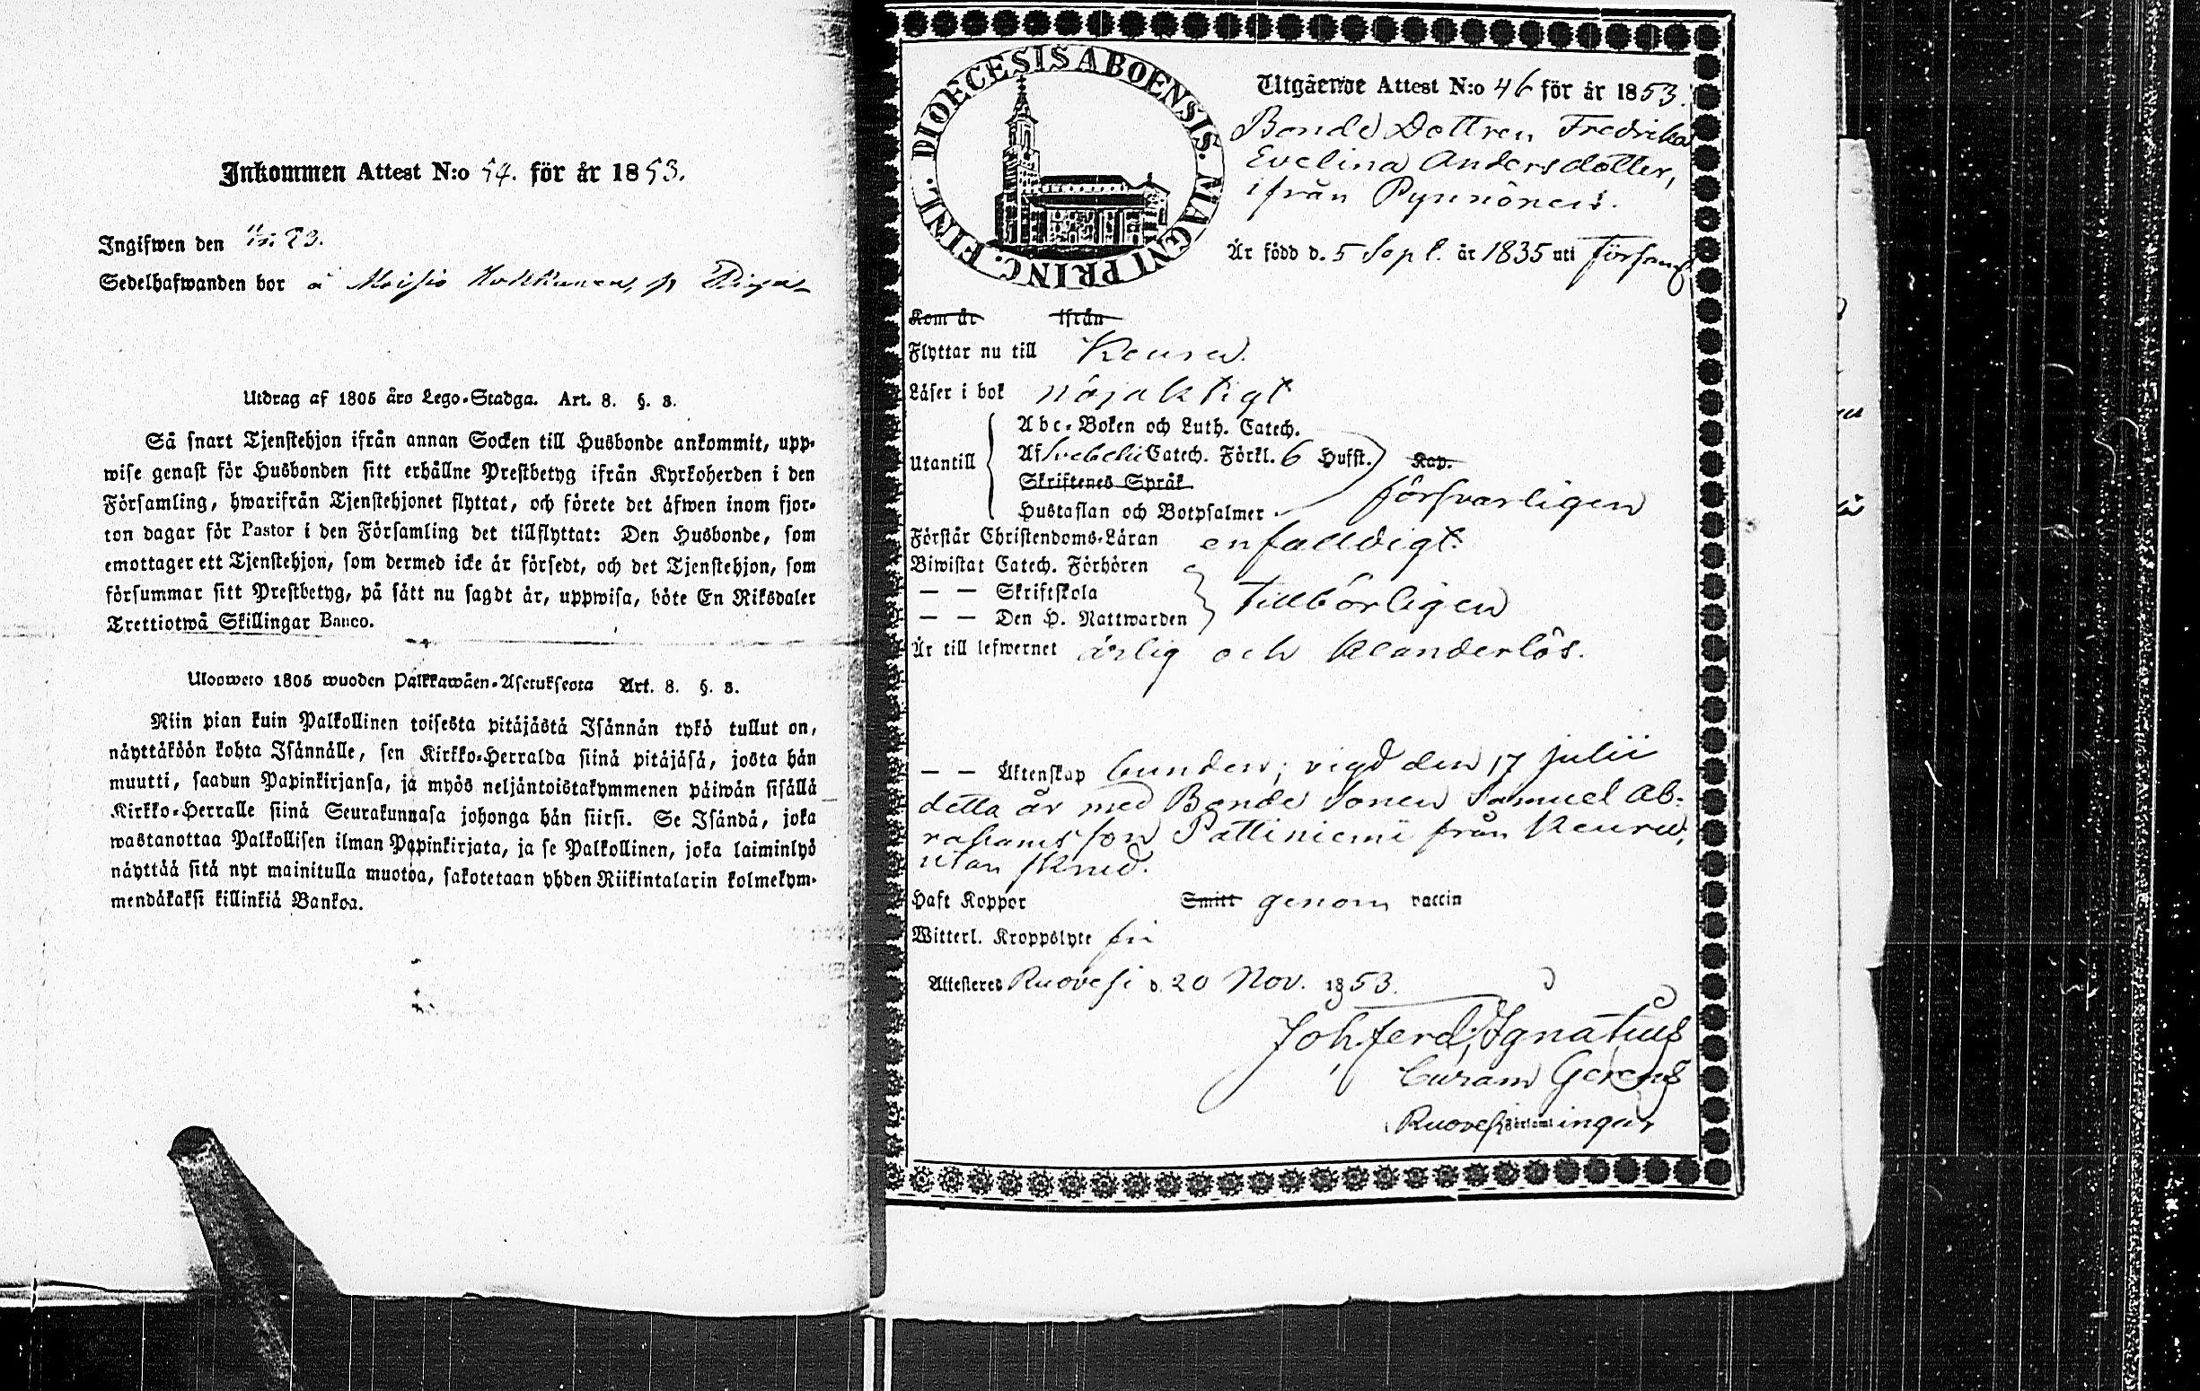 Inkommen Attest N:o 54. för år 1853.
Ingifwen den
Sedelhafwanden bor å Moisio
Utdrag af 1805 års Lego-Stadga. Art. 8. §. 3.
Så snart Tjenstehjon ifrån annan Socken till Husbonde ankommit, upp-
wise genast för Husbonden sitt erhållne Prestbetyg ifrån Kyrkoherden i den
Församling, hwarifrån Tjenstehjonet flyttat, och förete det äfwen inom fjor-
ton dagar för Pastor i den Församling det tillflyttat: Den Husbonde, som
emottager ett Tjenstehjon, som dermed icke är försedt, och det Tjenstehjon, som
försummar sitt Prestbetyg, på sätt nu sagdt är, uppwisa, böte En Riksdaler
Trettiotwå Skillingar Banco.
Ulosweto 1805 wuoden Palkkawäen-Asetuksesta Art. 8. §. 3.
Niin pian kuin Palkollinen toisesta pitäjästä Isännän tykö tullut on,
näyttäköön kohta Isännälle, sen Kirkko-Herralda siinä pitäjäsä, josta hän
muutti, saadun Papinkirjansa, ja myös neljäntoistakymmenen päiwän sisällä
Kirkko-Herralle siinä Seurakunnasa johonga hän siirsi. Se Isändä, joka
wastanottaa Palkollisen ilman Papinkirjata, ja se Palkollinen, joka laiminlyö
näyttää sitä nyt mainitulla muotoa, sakotetaan yhden Riikintalarin kolmekym-
mendäkaksi killinkiä Bankoa.
DIOECESIS ABOENSIS. MAGNI PRINC. FINL.
Utgående Attest N:o 46 för år 1853.
Bonde Dottren Fredrika
Evelina Andersdotter,
ifrån Pynnönen.
Är född d. 5 Sept. år 1835 uti Förſaml
Kom år ifrån
Flyttar nu till Keuru.
Läser i bok nöjaktigt
Abc-Boken och Luth. Catech.
Utantill Af Svebelii Catech. Förkl. 6 Hufst. Kap.
Skriftenes Språk
försvarligen
Hustaflan och Botpsalmer
Förstår Christendoms-Läran enfaldigt.
Biwistat Catech. Förhören
— — Skriftskola tillbörligen
— — Den H. Nattwarden
Är till lefwernet ärlig och klanderlös.
— — Äktenskap bunden; vigd den 17 Julii
detta år med Bonde Sonen Samuel Ab-
rahamsson Pättiniemi från Keuru,
utan skrud.
Haft Koppor Smitt genom vaccin
Witterl. Kroppslyte fri
Attesteres Ruovesi d. 20 Nov. 1853.
Joh. Ferd. Ignatius
Curam Gerens
Ruovesi Församlingar